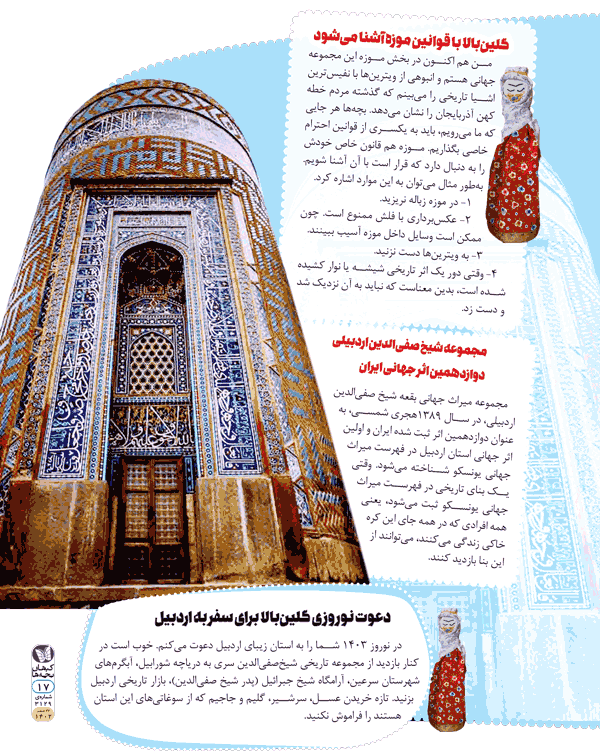 گلین‌بالا با قوانین موزه آشنا می‌شود
مـن هم اکنـون در بخش مـوزه این مجموعه
جهانی هستم و انبوهی از ویترین‌ها با نفیس‌ترین
اشـیا تاریخی را می‌بینم که گذشته مردم خطه
کهن آذربایجان را نشان می‌دهد. بچه‌ها هر جایی
که ما می‌رویم، باید به یکسـری از قوانین احترام
خاصی بگذاریم. موزه هم قانون خاص خودش
را به دنبال دارد که قرار است با آن آشنا شویم.
به‌طور مثال می‌توان به این موارد اشاره کرد.
۱- در موزه زباله نریزید.
۲- عکس‌برداری با فلش ممنوع است. چون
ممکن است وسایل داخل موزه آسیب ببینند.
۳- به ویترین‌ها دست نزنید.
۴- وقتی دور یک اثر تاریخی شیشـه یا نوار کشیده
شـده است، بدین معناست که نباید به آن نزدیک شد
و دست زد.
مجموعه شیخ صفی‌الدین اردبیلی
دوازدهمین اثر جهانی ایران
مجموعه میراث جهانی بقعه شیخ صفی‌الدین
اردبیلی، در سـال ۱۳۸۹هجری شمسـی، به
عنوان دوازدهمین اثر ثبت شده ایران و اولین
اثر جهانی استان اردبیل در فهرست میراث
جهانی یونسکو شناخته می‌شود. وقتی
یـک بنای تاریخی در فهرسـت میراث
جهانی یونسـکو ثبت می‌شود، یعنی
همه افرادی که در همه جای این کره
خاکی زندگی می‌کنند، می‌توانند از
این بنا بازدید کنند.
دعوت نوروزی گلین‌بالا برای سفر به اردبیل
در نوروز ۱۴۰۳ شـما را به استان زیبای اردبیل دعوت می‌کنم. خوب است در
کنار بازدید از مجموعه تاریخی شیخ‌صفی‌الدین سری به دریاچه شورابیل، آبگرم‌های
شهرستان سرعین، آرامگاه شیخ جبرائیل (پدر شیخ صفی‌الدین)، بازار تاریخی اردبیل
بزنید. تازه خریدن عسـل، سرشیر، گلیم و جاجیم که از سوغاتی‌های این استان
هستند را فراموش نکنید.
کیهان
بچه‌ها
۱۷
شماره‌ی
۳۱۲۹
۱۴۰۲